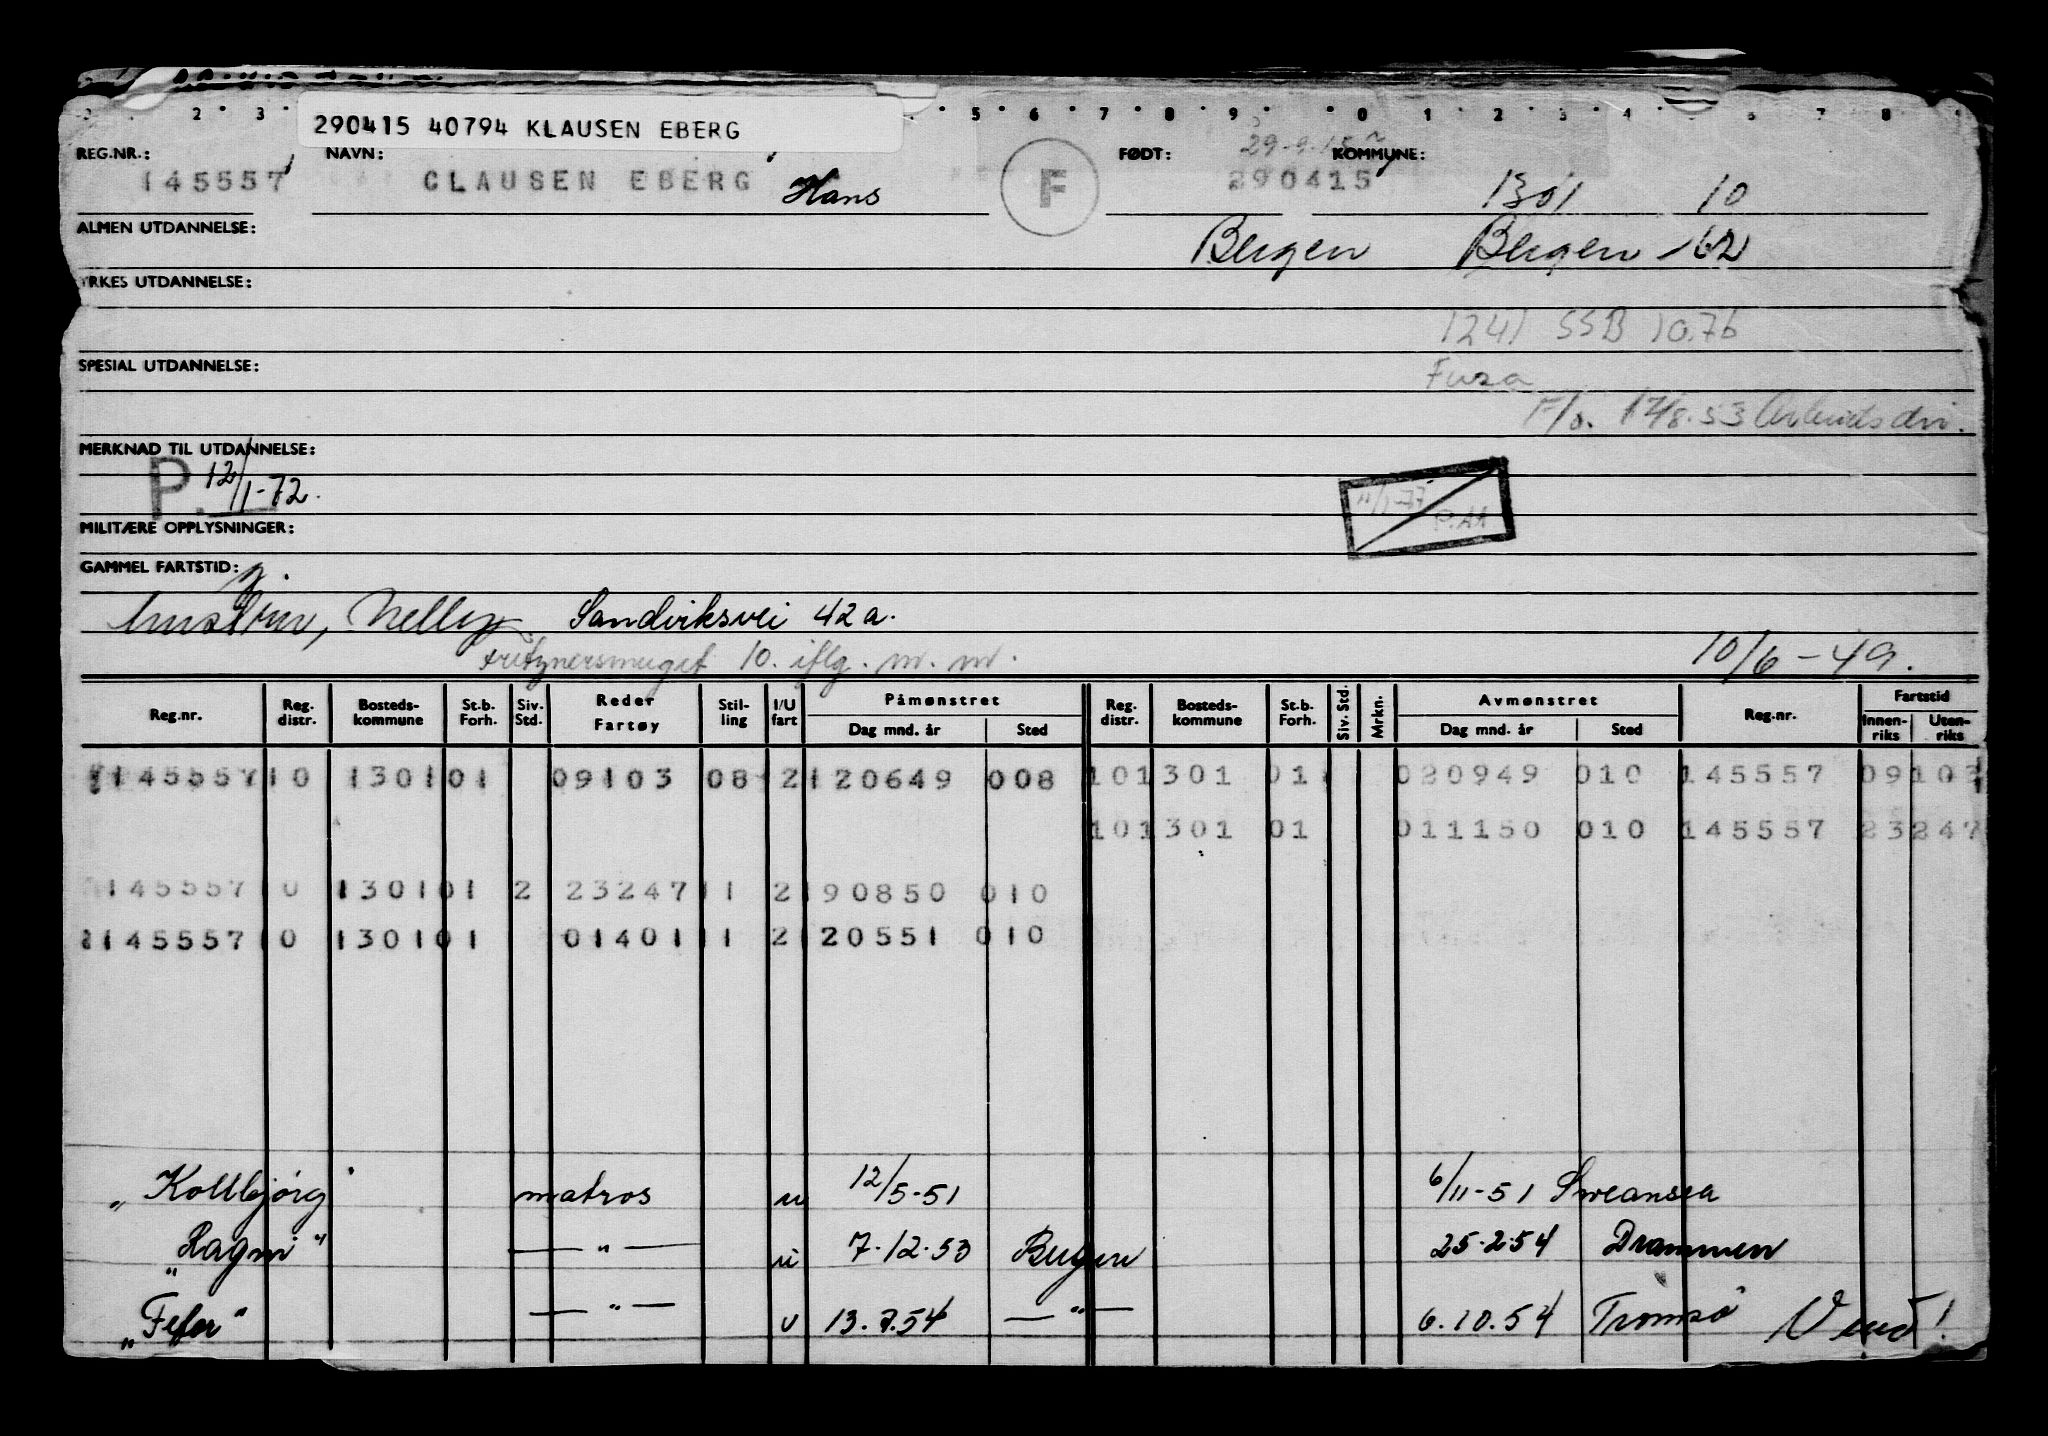 2 3 5 6 7 8 9 0 1 2 3 4 5 6 7 8
290415 40794 KLAUSEN EBERG
29-9-15
REG.NR.: NAVN: FØDT: KOMMUNE:
145557 CLAUSEN EBERG Hans F 290415 1301 10
ALMEN UTDANNELSE: Bergen Bergen 162
YRKES UTDANNELSE:
1241 SSB 10.76
SPESIAL UTDANNELSE: Fusa
F/o. 17/8.53 Arbeidsdir.
MERKNAD TIL UTDANNELSE:
P. 12/1-72.
11/1-77 P.A1
MILITÆRE OPPLYSNINGER:
GAMMEL FARTSTID: g.
hustru, Nelly Sandviksvei 42a.
Fritznersmuget 10. iflg. m. m. 10/6-49.
Reg.nr. Reg. distr. Bosteds-kommune St.b. Forh. Siv. Std. Reder Fartøy Stil-ling I/U fart Påmønstret Dag mnd. år Sted Reg. distr. Bosteds-kommune St.b. Forh. Siv. Std. Mrkn. Avmønstret Dag mnd. år Sted Reg.nr. Fartstid Innen-riks Uten-riks
145557 10 1301 01 09103 08 2 120649 008 10 1301 01 020949 010 145557 09103
10 1301 01 011150 010 145557 23247
145557 10 1301 01 2 23247 11 2 190850 010
145557 10 1301 01 01401 11 2 120551 010
"Kollbjörg matros u 12/5-51 6/11-51 Sweansea
"Ragni" — " — u 7.12.53 Bergen 25.2.54 Drammen
"Fefor" — " — u 13.7.54 — " — 6.10.54 Tromsö Vend!